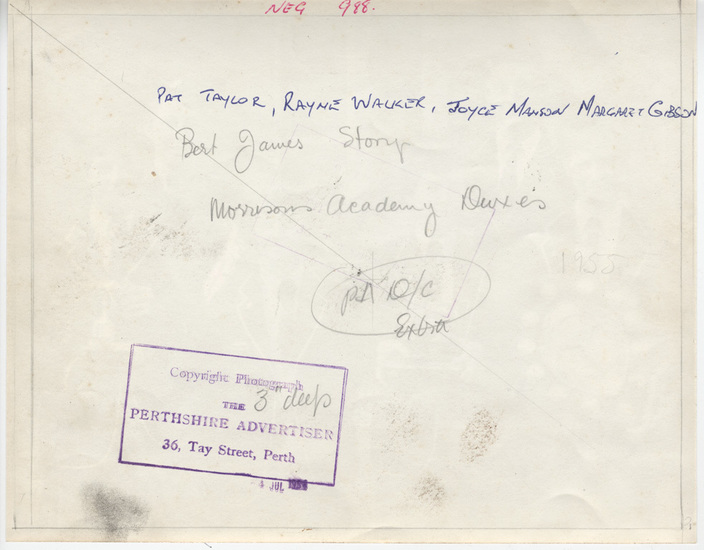 NEG 988.
PAT TAYLOR, RAYNE WALKER, JOYCE MANSON MARGARET GIBSON
Bert James Story
Morrisons Academy Duxes
1955
PA D/C
Extra
Copyright Photograph
3" deep
THE
PERTHSHIRE ADVERTISER
36, Tay Street, Perth
JUL